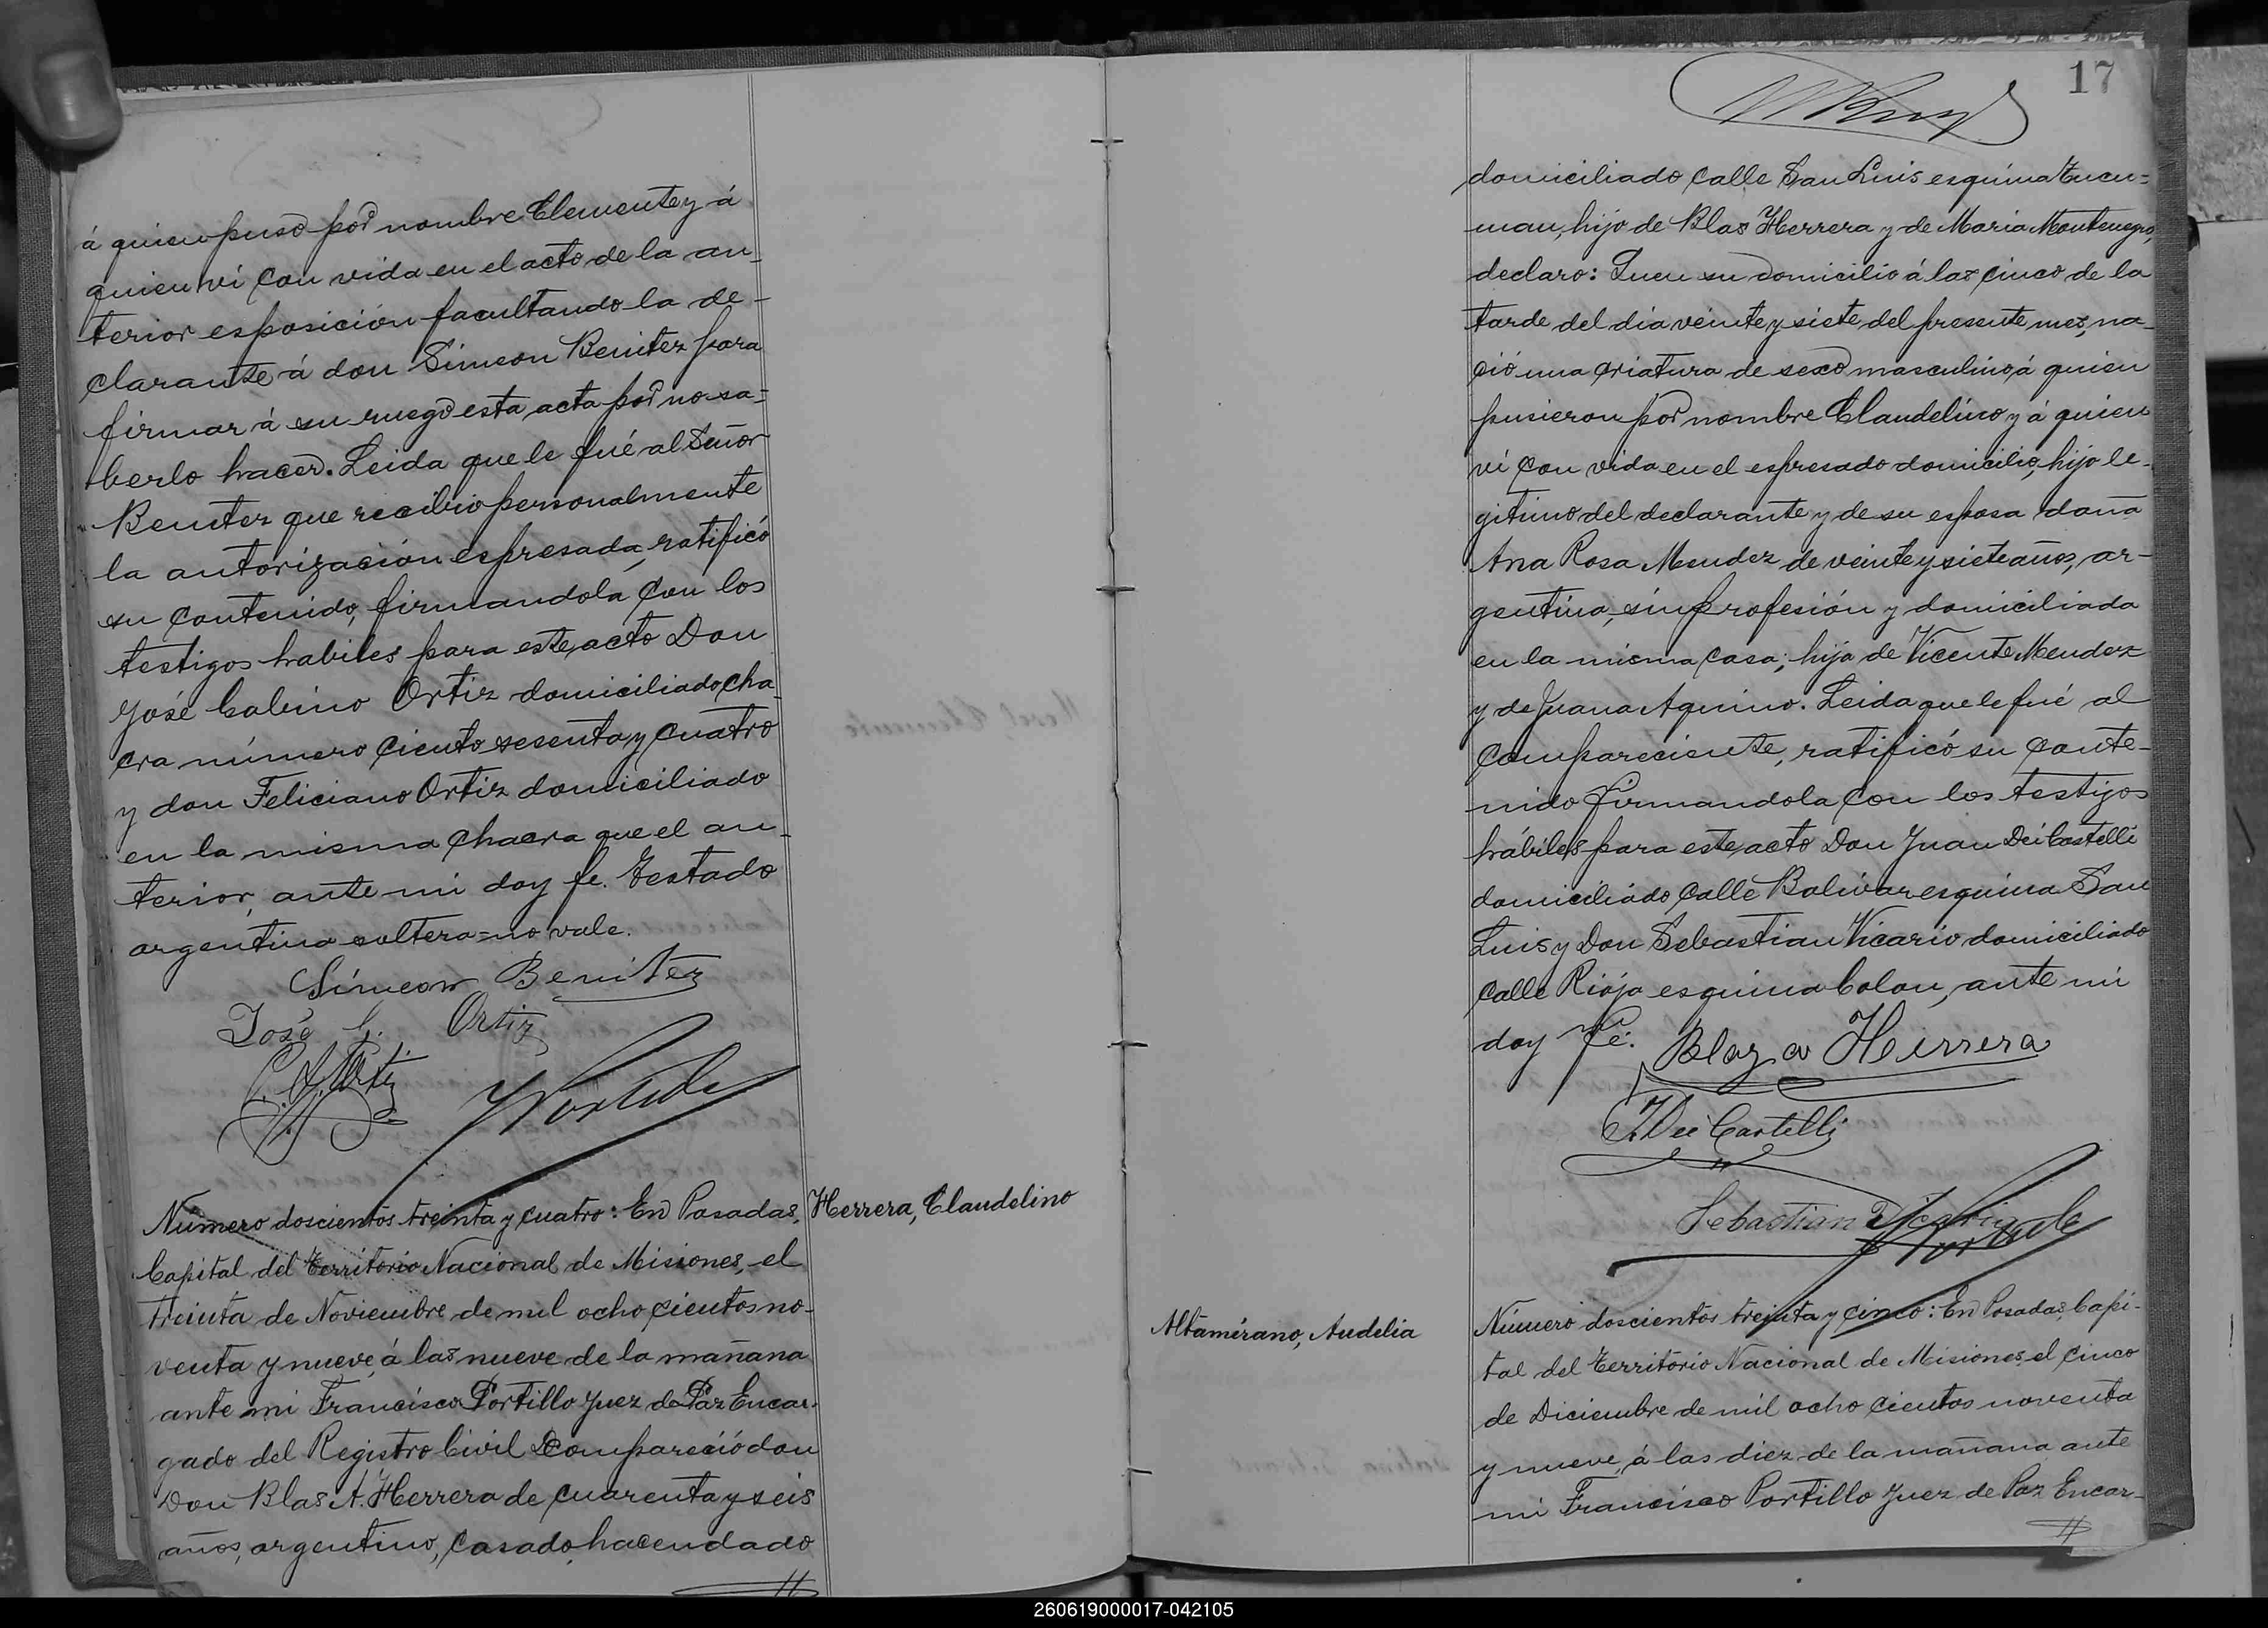 á quien puso por nombre Clemente y á
quien vi con vida en el acto de la an-
terior esposición facultando la de-
clarante á don Simeon Benitez para
firmar á su ruego esta acta por no sa-
berlo hacer. Leida que le fué al Señor
Benitez que recibio personalmente
la autorización espresada, ratificó
su contenido, firmandola con los
testigos habiles para este acto Don
José Gabino Ortiz domiciliado cha-
cra número ciento sesenta y cuatro
y don Feliciano Ortiz domiciliado
en la misma chacra que el an-
terior, ante mi doy fe. Testado
argentina soltera=no vale.
Simeon Benitez
José G. Ortiz
Número doscientos treinta y cuatro: En Posadas,
Herrera, Claudelino
Capital del Territorio Nacional de Misiones, el
treinta de Noviembre de mil ocho cientos no-
venta y nueve, á las nueve de la mañana
ante mi Francisco Portillo Juez de Paz Encar-
gado del Registro Civil Compareció don
Don Blas A. Herrera de cuarenta y seis
años, argentino, casado, hacendado
17
domiciliado calle San Luis esquina Tucu-
man, hijo de Blas Herrera y de Maria Montenegro,
declaro: Quen su domicilio á las cinco de la
tarde del dia veinte y siete del presente mes, na-
ció una criatura de sexo masculino á quien
pusieron por nombre Claudelino y á quien
vi con vida en el espresado domicilio, hijo le-
gitimo del declarante y de su esposa doña
Ana Rosa Mendez de veinte y siete años, ar-
gentina, sin profesión y domiciliada
en la misma casa; hija de Vicente Mendez
y de Juana Aquino. Leida que le fué al
compareciente, ratificó su conte-
nido firmandola con los testigos
hábiles para este acto Don Juan Dei Castelli
domiciliado calle Bolivar esquina San
Luis y Don Sebastian Vicario domiciliado
calle Rioja esquina Colon, ante mi
doy fé.
Blaz A Herrera
J. Dei Castelli
Sebastian Vicario
Altamirano, Audelia
Número doscientos treinta y cinco: En Posadas, Capi-
tal del Territorio Nacional de Misiones, el cinco
de Diciembre de mil ocho cientos noventa
y nueve, á las diez de la mañana ante
mi Francisco Portillo Juez de Paz Encar-
260619000017-042105